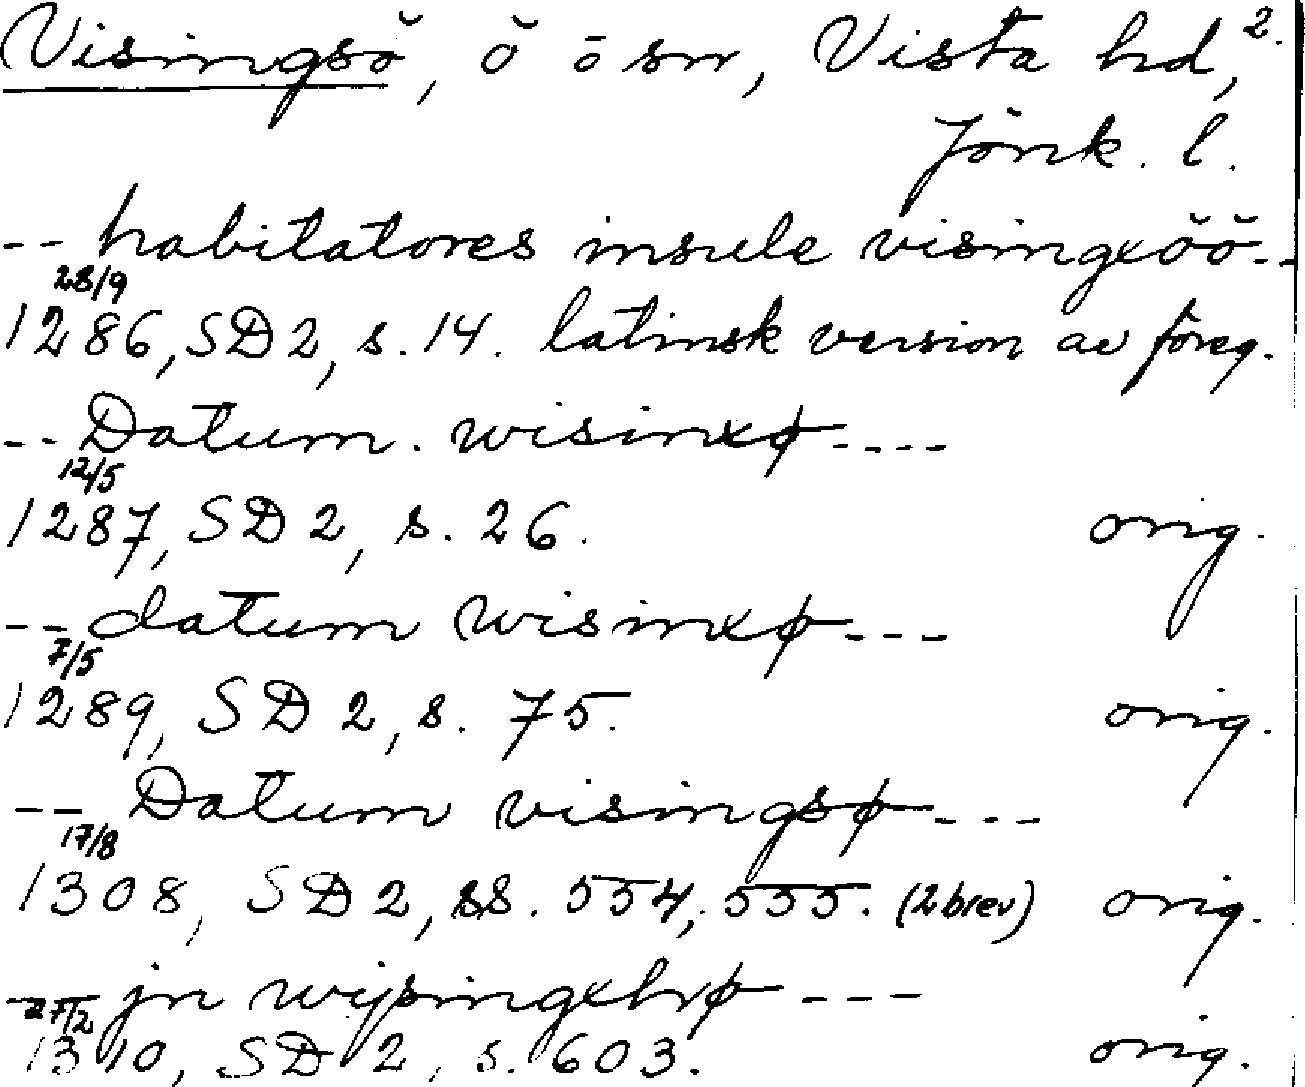 Visingsö, ö ō sn, Vista hd, 2.
Jönk. l.
-- habitatores insule visingxöö--
28/9
1286, SD 2, s. 14. latinsk version av föreg.
-- Datum. wisinxø----
12/5
1287, SD 2, s. 26. orig.
-- datum wisinxø---
7/5
1289, SD 2, s. 75. orig.
-- Datum visingsø---
17/8
1308, SD 2, ss. 554, 555. (2 brev) orig.
-- jn
27/2
1310, SD 2, s. 603. orig.